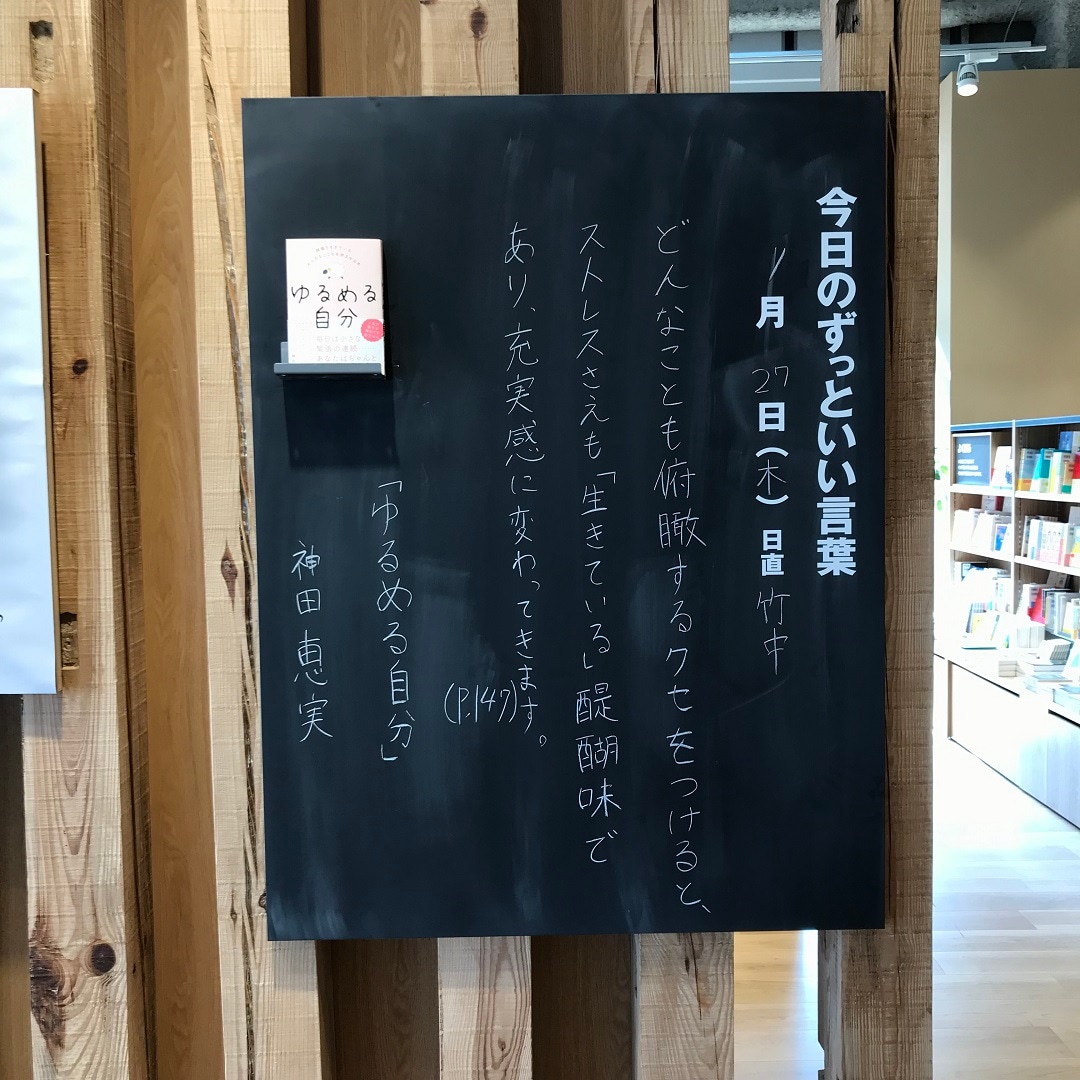 今日のずっといい言葉
1月27日(木)日直 竹中
どんなことも俯瞰するクセをつけると、
ストレスさえも「生きている」醍醐味で
あり、充実感に変わってきます。
(P.147)
「ゆるめる自分」
神田恵実
ゆるめる
自分
毎日は小さな
緊張の連続
あなたはちゃんと